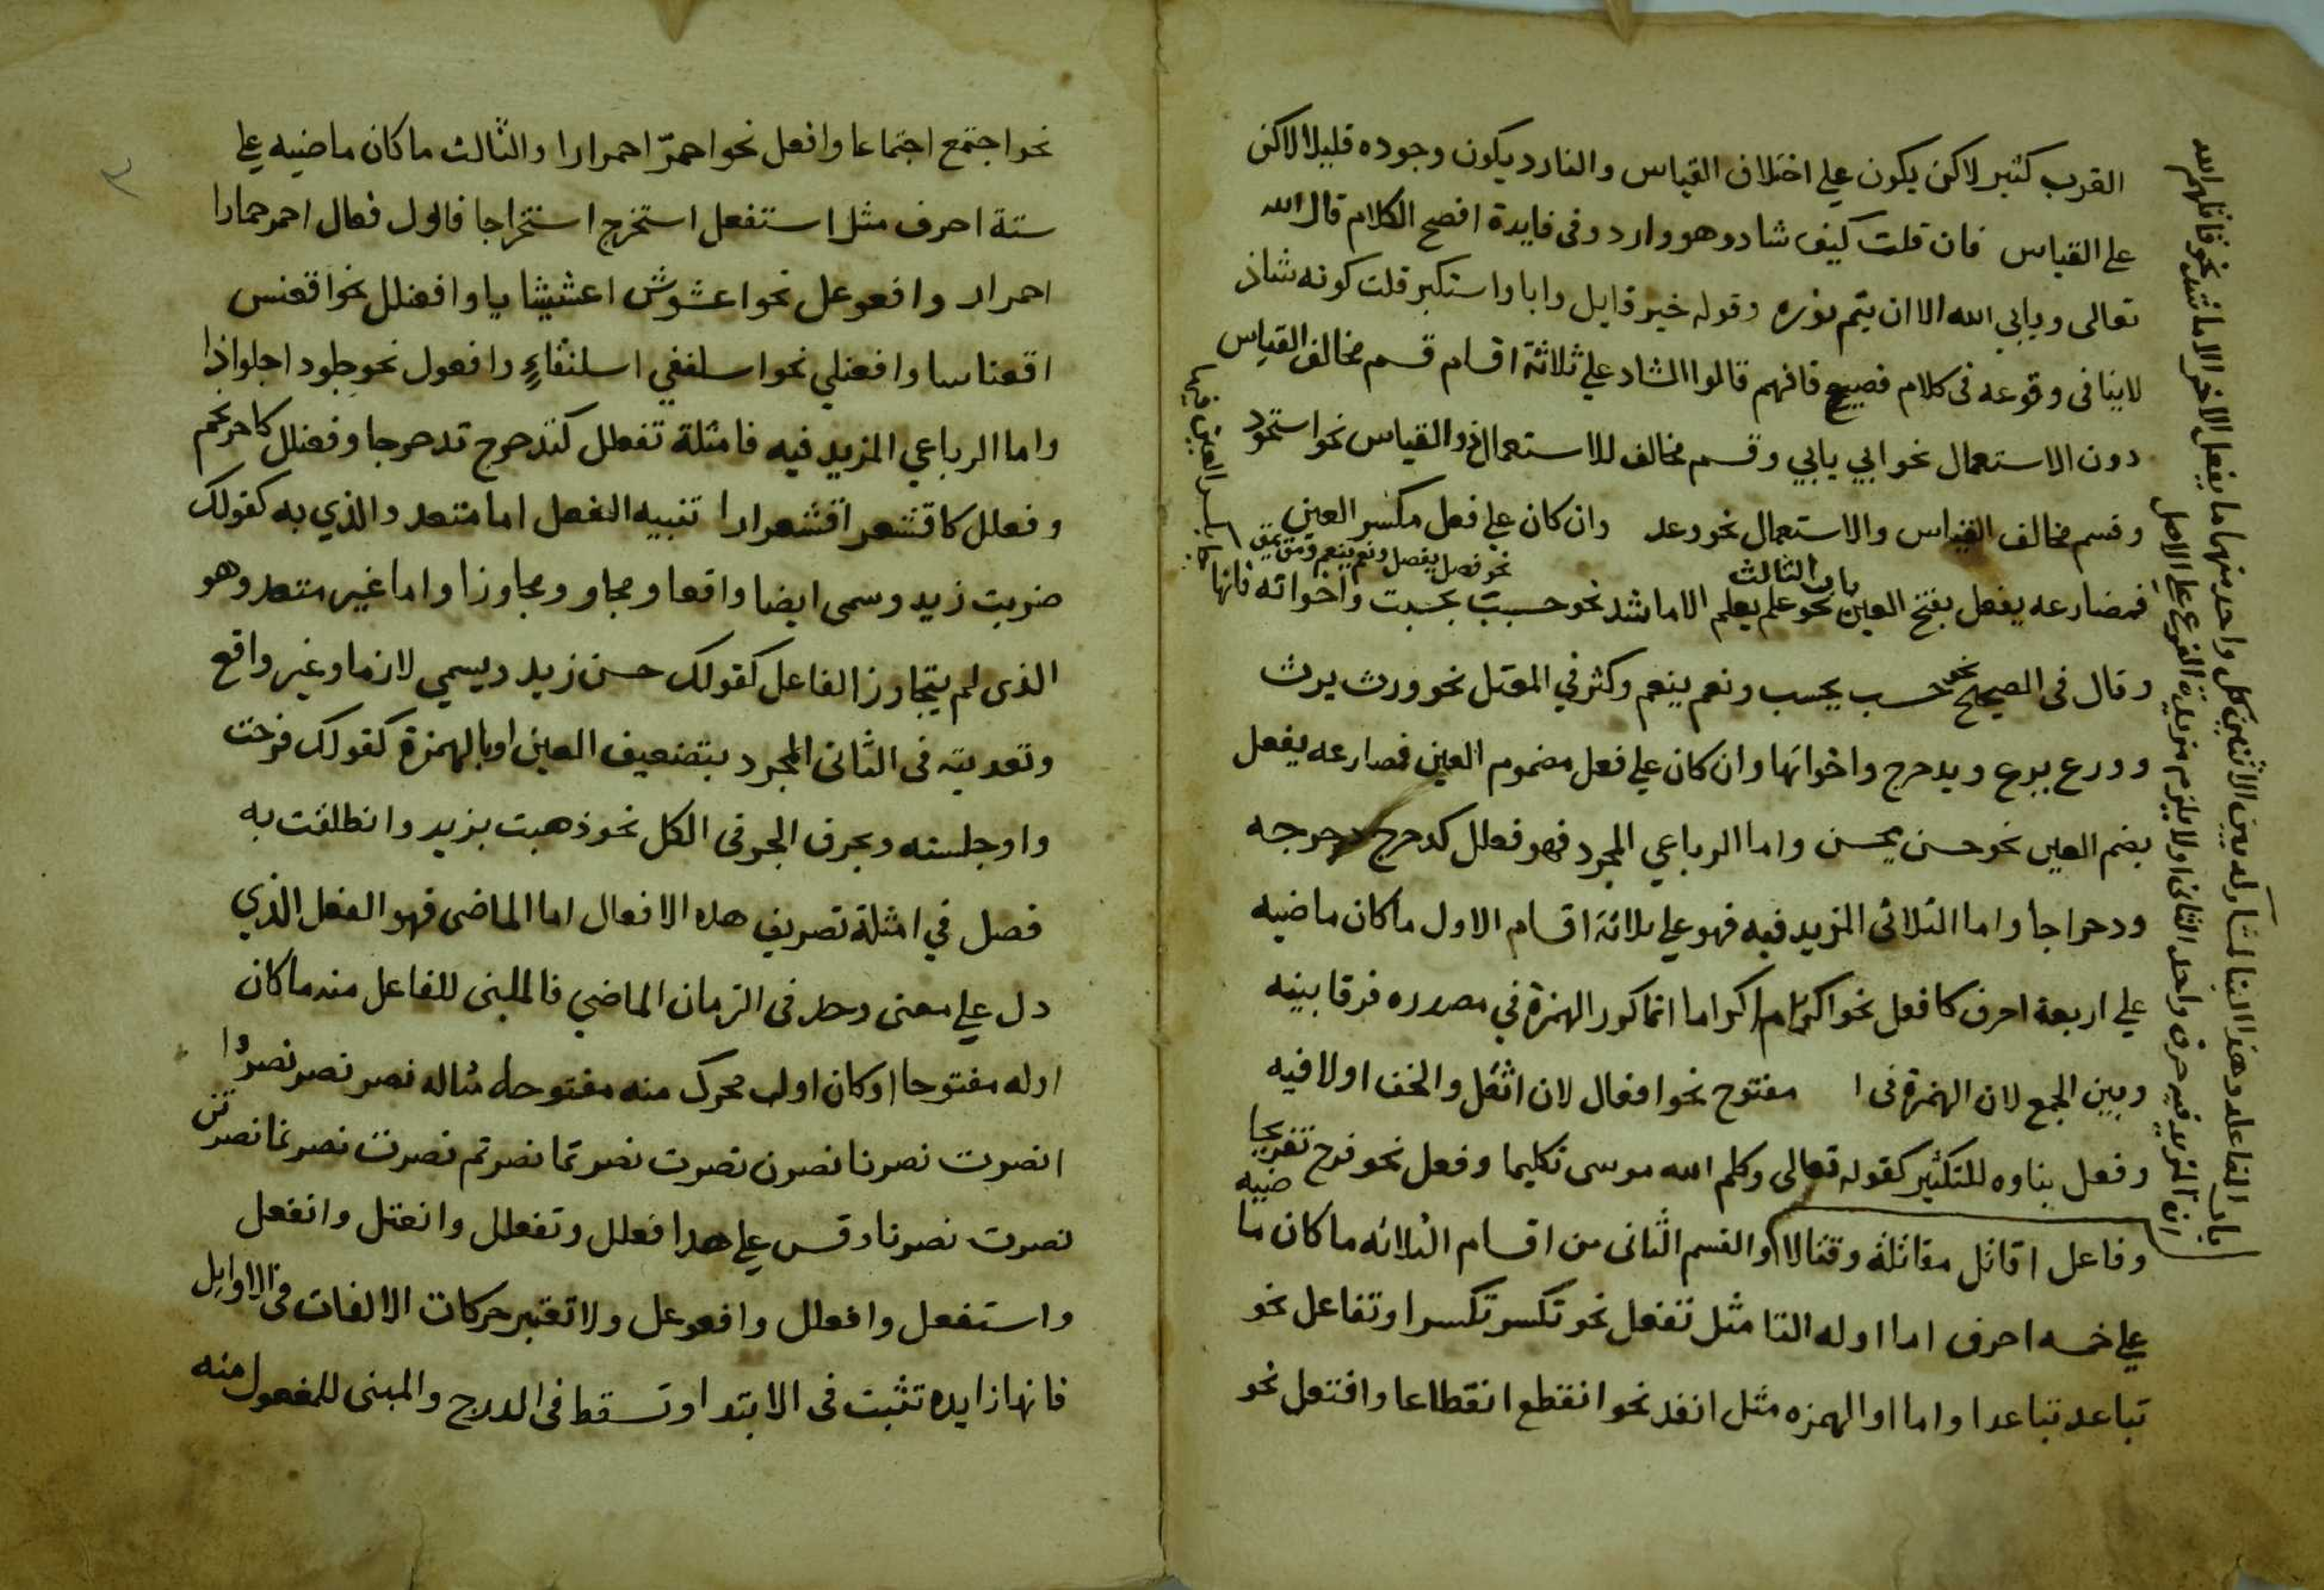 القرب كثير لاكن يكون على اختلاف القياس والنادر ديكون وجوده قليلا لاكن
على القياس فان قلت كيف شادوهو وارد وفى فايدة افصح الكلام قال الله
تعالى ويابي الله الا ان يتم نوره وقوله خير قايل وابا واستكبر قلت كونه شاذ
لاينافى وقوعه فى كلام فصيح فافهم قالوا الشاد على ثلاثة اقسام قسم مخالف القياس
دون الاستعمال نحو ابي يابي وقسم مخالف للاستعمال دو القياس نحو استحود
وقسم مخالف القياس والاستعمال نحو ودعد وان كان على فعل مكسر العين
نحو فصل يفصل ونعم ينعم ومق يمق
باب الثالث
فمضارعه يفعل بفتح العين نحو علم يعلم الا ماشد نحو حسبت بحسبت واخواته فانها
بكسر العين فيها
وقال فى الصحيح نحو حسب يحسب ونعم ينعم وكثر في المعتل نحو ورث يرث
وورع يرع ويدحرج واخواتها وان كان على فعل مضموم العين فمصارعه يفعل
بضم العين نحو حسن يحسن واما الرباعي المجرد فهو فعلل كدحرج دحرجه
ودحراجا واما الثلاثى المزيد فيه فهو على ثلاثة اقسام الاول ماكان ماضيه
على اربعة احرف كافعل نحو اكرم اكراما انما كور الهمزة في مصدره فرقا بينه
وبين الجمع لان الهمزة فى ا مفتوح نحو افعال لان اثقل والخف اولا فيه
وفعل بناوه للتكثير كقوله تعالى وكلم الله موسى تكليما وفعل نحو فرح تفريحا
وفاعل اقاتل مقاتلة وقتالا والقسم الثانى من اقسام الثلاثه ماكان ماضيه
على خمسه احرف اما اوله التا مثل تفعل نحو تكسر تكسرا وتفاعل نحو
تباعد تباعدا واما او الهمزه مثل انفد نحو انقطع انقطاعا وافتعل نحو
باب الفاعله وهذا البنا لمشاركه بين الاثنين كل واحد منهما ما يفعل الاخر الا ما شد نحو قاتلهم الله
ان المزيد فيه حرف واحد الثانى اولا يلزم مزيدة الفرع على الاصل
نحو اجتمع اجتماعا وافعل نحو احمرّ احمرارا والثالث ماكان ماضيه على
ستة احرف مثل استفعل استخرج استخراجا فالول فعال احمر حمارا
احمرار وافعوعل نحو اعشوش اعشيشا يا وافعنلل نحو اقعنس
اقعناسا وافعنلي نحو اسلنقي اسلنقاءٍ وافعول نحو جلود اجلواذا
واما الرباعي المزيد فيه فامثلة تفعلل كتدحرج تدحرجا وفعنلل كاحرنجم
وفعلل كاقشعر اقشعرارا تنبيه الفعل اما متعد والذي به كقولك
ضربت زيد وسمى ايضا واقعا ومجاو ومجاوزا واما غير متعد وهو
الذى لم يتجاوز الفاعل كقولك حسن زيد ويسمي لازما وغير واقع
وتعديته فى الثانى المجرد بتضعيف العين او بالهمزة كقولك فرحت
واوجلسته وبحرف الجر فى الكل نحو ذهبت بزيد وانطلقت به
فصل في امثلة تصريف هذه الافعال اما الماضى فهو الفعل الذي
دل على معنى وحد فى الزمان الماضي فالمبنى للفاعل منه ماكان
اوله مفتوحا او كان اول محرك منه مفتوحا مثاله نصر نصر نصروا
انصرت نصرتا نصرن نصرت نصرتما نصرتم نصرت نصرتما نصرتن
نصرت نصرنا وقس على هدا فعلل وتفعلل وانعتل وانفعل
واستفعل وافعلل وافعوعل ولا تعتبر حركات الالفات فى الاوايل
فانها زايده تثبت فى الابتدا وتسقط فى الدرج والمبنى للمفعول منه